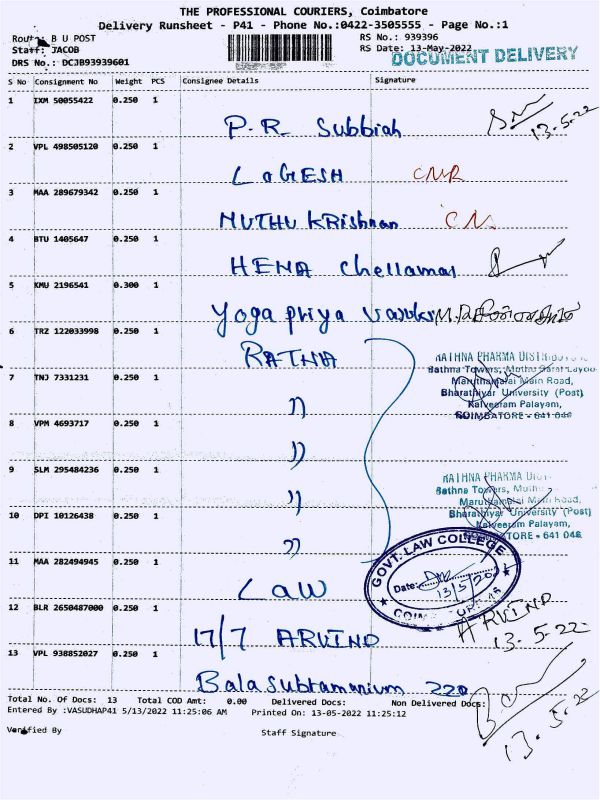 THE PROFESSIONAL COURIERS, Coimbatore
Delivery Runsheet - P41 - Phone No.:0422-3505555 - Page No.:1
Route: B U POST RS No.: 939396
Staff: JACOB RS Date: 13-May-2022
DRS No.: DCJB93939601 DOCUMENT DELIVERY
S No Consignment No Weight PCS Consignee Details Signature
1 IXM 50055422 0.250 1 P.R. Subbiah 13-5-22
2 VPL 498505120 0.250 1 LOGESH
3 MAA 289679342 0.250 1 MUTHU Krishnan
4 BTU 1405647 0.250 1 HEMA Chellamal
5 KMU 2196541 0.300 1 Yoga priya
6 TRZ 122033998 0.250 1 RATHNA
RATHNA PHARMA
Rathna Towers,
7 TNJ 7331231 0.250 1 "
Maruthamalai Main Road,
Bharathiyar University (Post)
Kalveeram Palayam,
COIMBATORE - 641 046
8 VPM 4693717 0.250 1 "
9 SLM 295484236 0.250 1 "
RATHNA PHARMA
Rathna Towers,
Maruthamalai Main Road,
Bharathiyar University (Post)
10 DPI 10126438 0.250 1 "
Kalveeram Palayam,
COIMBATORE - 641 046
11 MAA 282494945 0.250 1 LAW
GOVT. LAW COLLEGE
Date: 13/5/2022
12 BLR 2650487000 0.250 1 17/7 ARVIND ARVIND
13-5-22
13 VPL 938852027 0.250 1 Balasubramanium 220
13-5-22
Total No. Of Docs: 13 Total COD Amt: 0.00 Delivered Docs: Non Delivered Docs:
Entered By :VASUDHAP41 5/13/2022 11:25:06 AM Printed On: 13-05-2022 11:25:12
Verified By Staff Signature